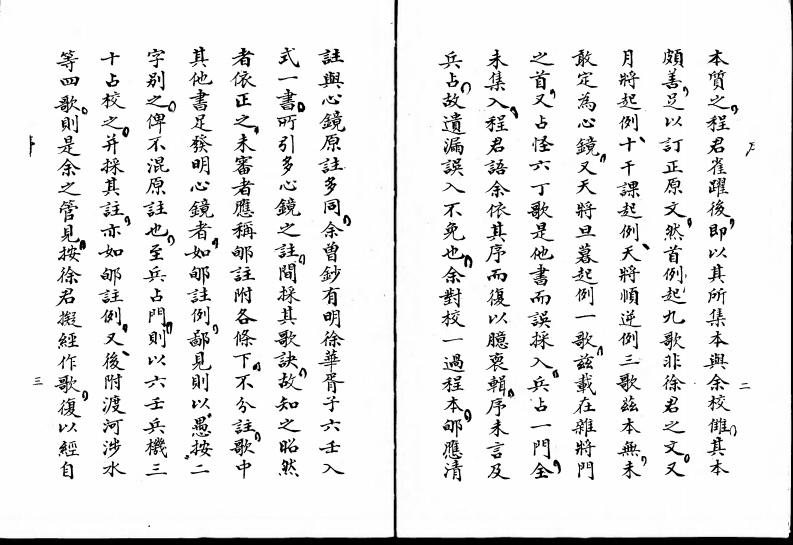 本質之程君雀躍後即以其所集本與余校讎其本
頗善足以訂正原文然首例起九歌非徐君之文又
月將起例十干課起例天將順逆例三歌茲本無未
敢定為心鏡又天將旦暮起例一歌茲載在雜將門
之首又占怪六丁歌是他書而誤採入兵占一門全
未集入程君語余依其序而復以臆裒輯序未言及
兵占故遺漏誤入不免也余對校一過程本邨應清
註與心鏡原註多同余曾鈔有明徐華胥子六壬入
式一書所引多心鏡之註間採其歌訣故知之昭然
者依正之未審者應稱邨註附各條下不分註歌中
其他書足發明心鏡者如邨註例鄙見則以愚按二
字別之俾不混原註也至兵占門則以六壬兵機三
十占校之并採其註亦如邨註例又後附渡河涉水
等四歌則是余之管見按徐君擬經作歌復以經自
二
三